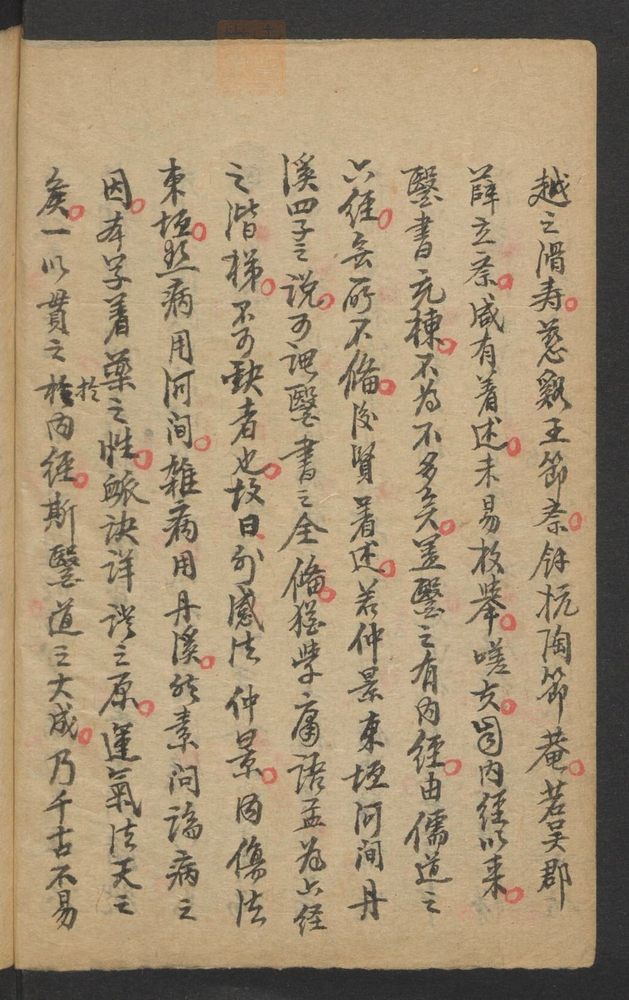 越之滑寿慈谿王節斎餘杭陶節菴若吳郡
薛立斎咸有着述未易枚舉嗟夫自内經以来
醫書充棟不为不多矣盖醫之有内經由儒道之
六經無所不備後賢着述若仲景東垣河间丹
溪四子之說可谓醫書之全備猶學庸語孟为六經
之階梯不可缺者也故曰外感法仲景内傷法
東垣热病用河间雜病用丹溪然素问論病之
因本草着藥之性脈訣詳證之原運氣法天之
候一以貫之於内經斯醫道之大成乃千古不易
於